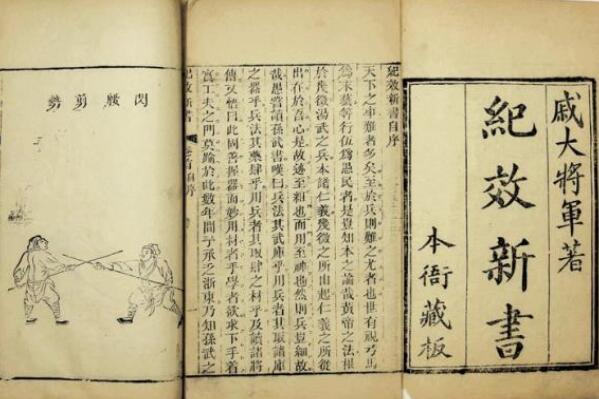 戚大將軍著
紀效新書
本衙藏板
紀效新書自序
天下之事難者多矣至於兵則難之尤者也世有視弓馬
為末藝等行伍為愚民者是豈知本之論哉黃帝之法根
於幾微湯武之兵本諸仁義幾微之所由起仁義之所從
出在於吾心是故迹至粗也而用至神也然則兵豈細故
哉愚嘗讀孫武書嘆曰兵法其武庫乎用兵者其取諸庫
之器乎兵法其藥肆乎用兵者其取肆之材乎及讀諸將
傳又悟曰此固善握器而妙用材者乎學者欲求下手着
實工夫之門莫踰於此數年間予承乏浙東乃知孫武之
紀效新書 自序
閃腰剪勢